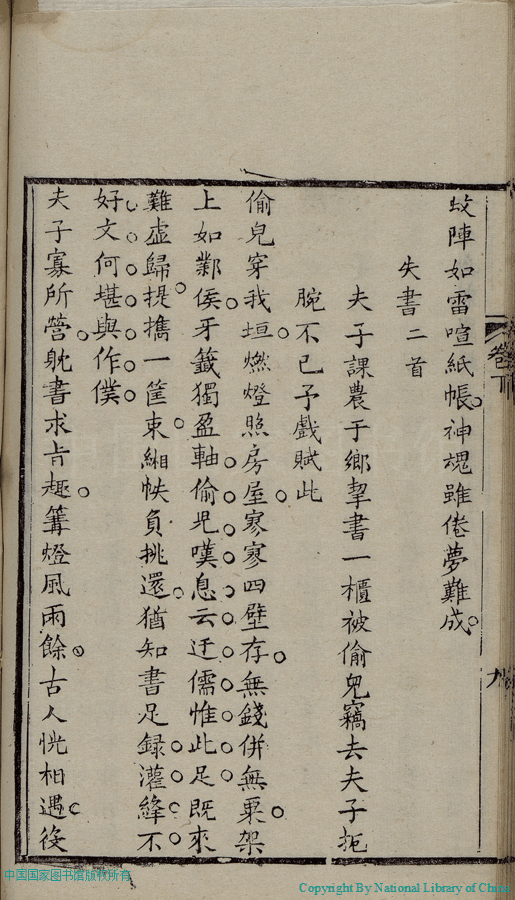 蚊陣如雷喧紙帳神魂雖倦夢難成
失書二首
夫子課農于鄉挈書一櫃被偷兒竊去夫子扼
腕不已予戲賦此
偷兒穿我垣燃燈照房屋寥寥四壁存無錢併無粟架
上如鄴侯牙籤獨盈軸偷児嘆息云迂儒惟此足既來
難虛歸提攜一筐束緗帙負挑還猶知書足録灌絳不
好文何堪與作僕
夫子寡所營躭書求旨趣篝燈風雨餘古人恍相遇後
卷下
九
中国国家图书馆版权所有
Copyright By National Library of Chin